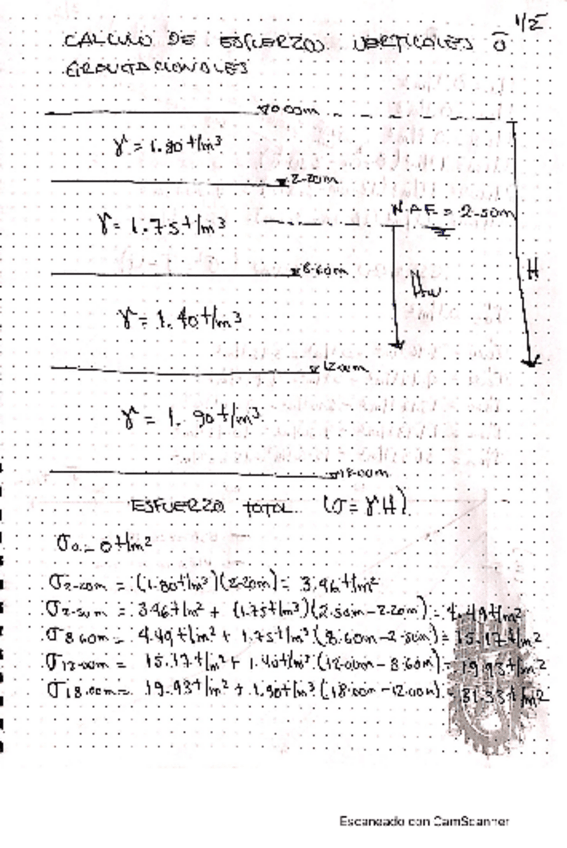 1/2
CALCULO DE ESFUERZOS VERTICALES ō
GRAVITACIONALES
0.00m
γ = 1.80 t/m³
2.20m
N.A.F. = 2.50m
γ = 1.75 t/m³
8.60m
H
Hw
γ = 1.40 t/m³
12.00m
γ = 1.90 t/m³
18.00m
ESFUERZO TOTAL (σ = γH)
σ0 = 0 t/m²
σ2.20m = (1.80 t/m³)(2.20m) = 3.96 t/m²
σ2.50m = 3.96 t/m² + (1.75 t/m³)(2.50m - 2.20m) = 4.49 t/m²
σ8.60m = 4.49 t/m² + 1.75 t/m³ (8.60m - 2.50m) = 15.17 t/m²
σ12.00m = 15.17 t/m² + 1.40 t/m³ (12.00m - 8.60m) = 19.93 t/m²
σ18.00m = 19.93 t/m² + 1.90 t/m³ (18.00m - 12.00m) = 31.33 t/m²
Escaneado con CamScanner